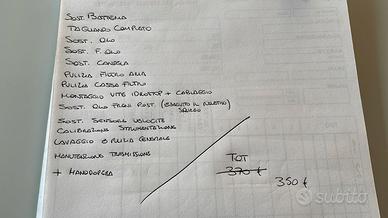 SOST. BATTERIA
TAGLIANDO COMPLETO
SOST. OLIO
SOST. F. OLIO
SOST. CANDELA
PULIZIA FILTRO ARIA
PULIZIA CASSA FILTRO
MONTAGGIO VITE IDROSTOP + CABLAGGIO
SOST. OLIO FRENI POST. (ESEGUITO IL RELATIVO
SPURGO)
SOST. SENSORE VELOCITÀ
CALIBRAZIONE STRUMENTAZIONE
LAVAGGIO E PULIZIA GENERALE
MANUTENZIONE TRASMISSIONE
+ MANODOPERA
TOT
370 €
350 €
subito